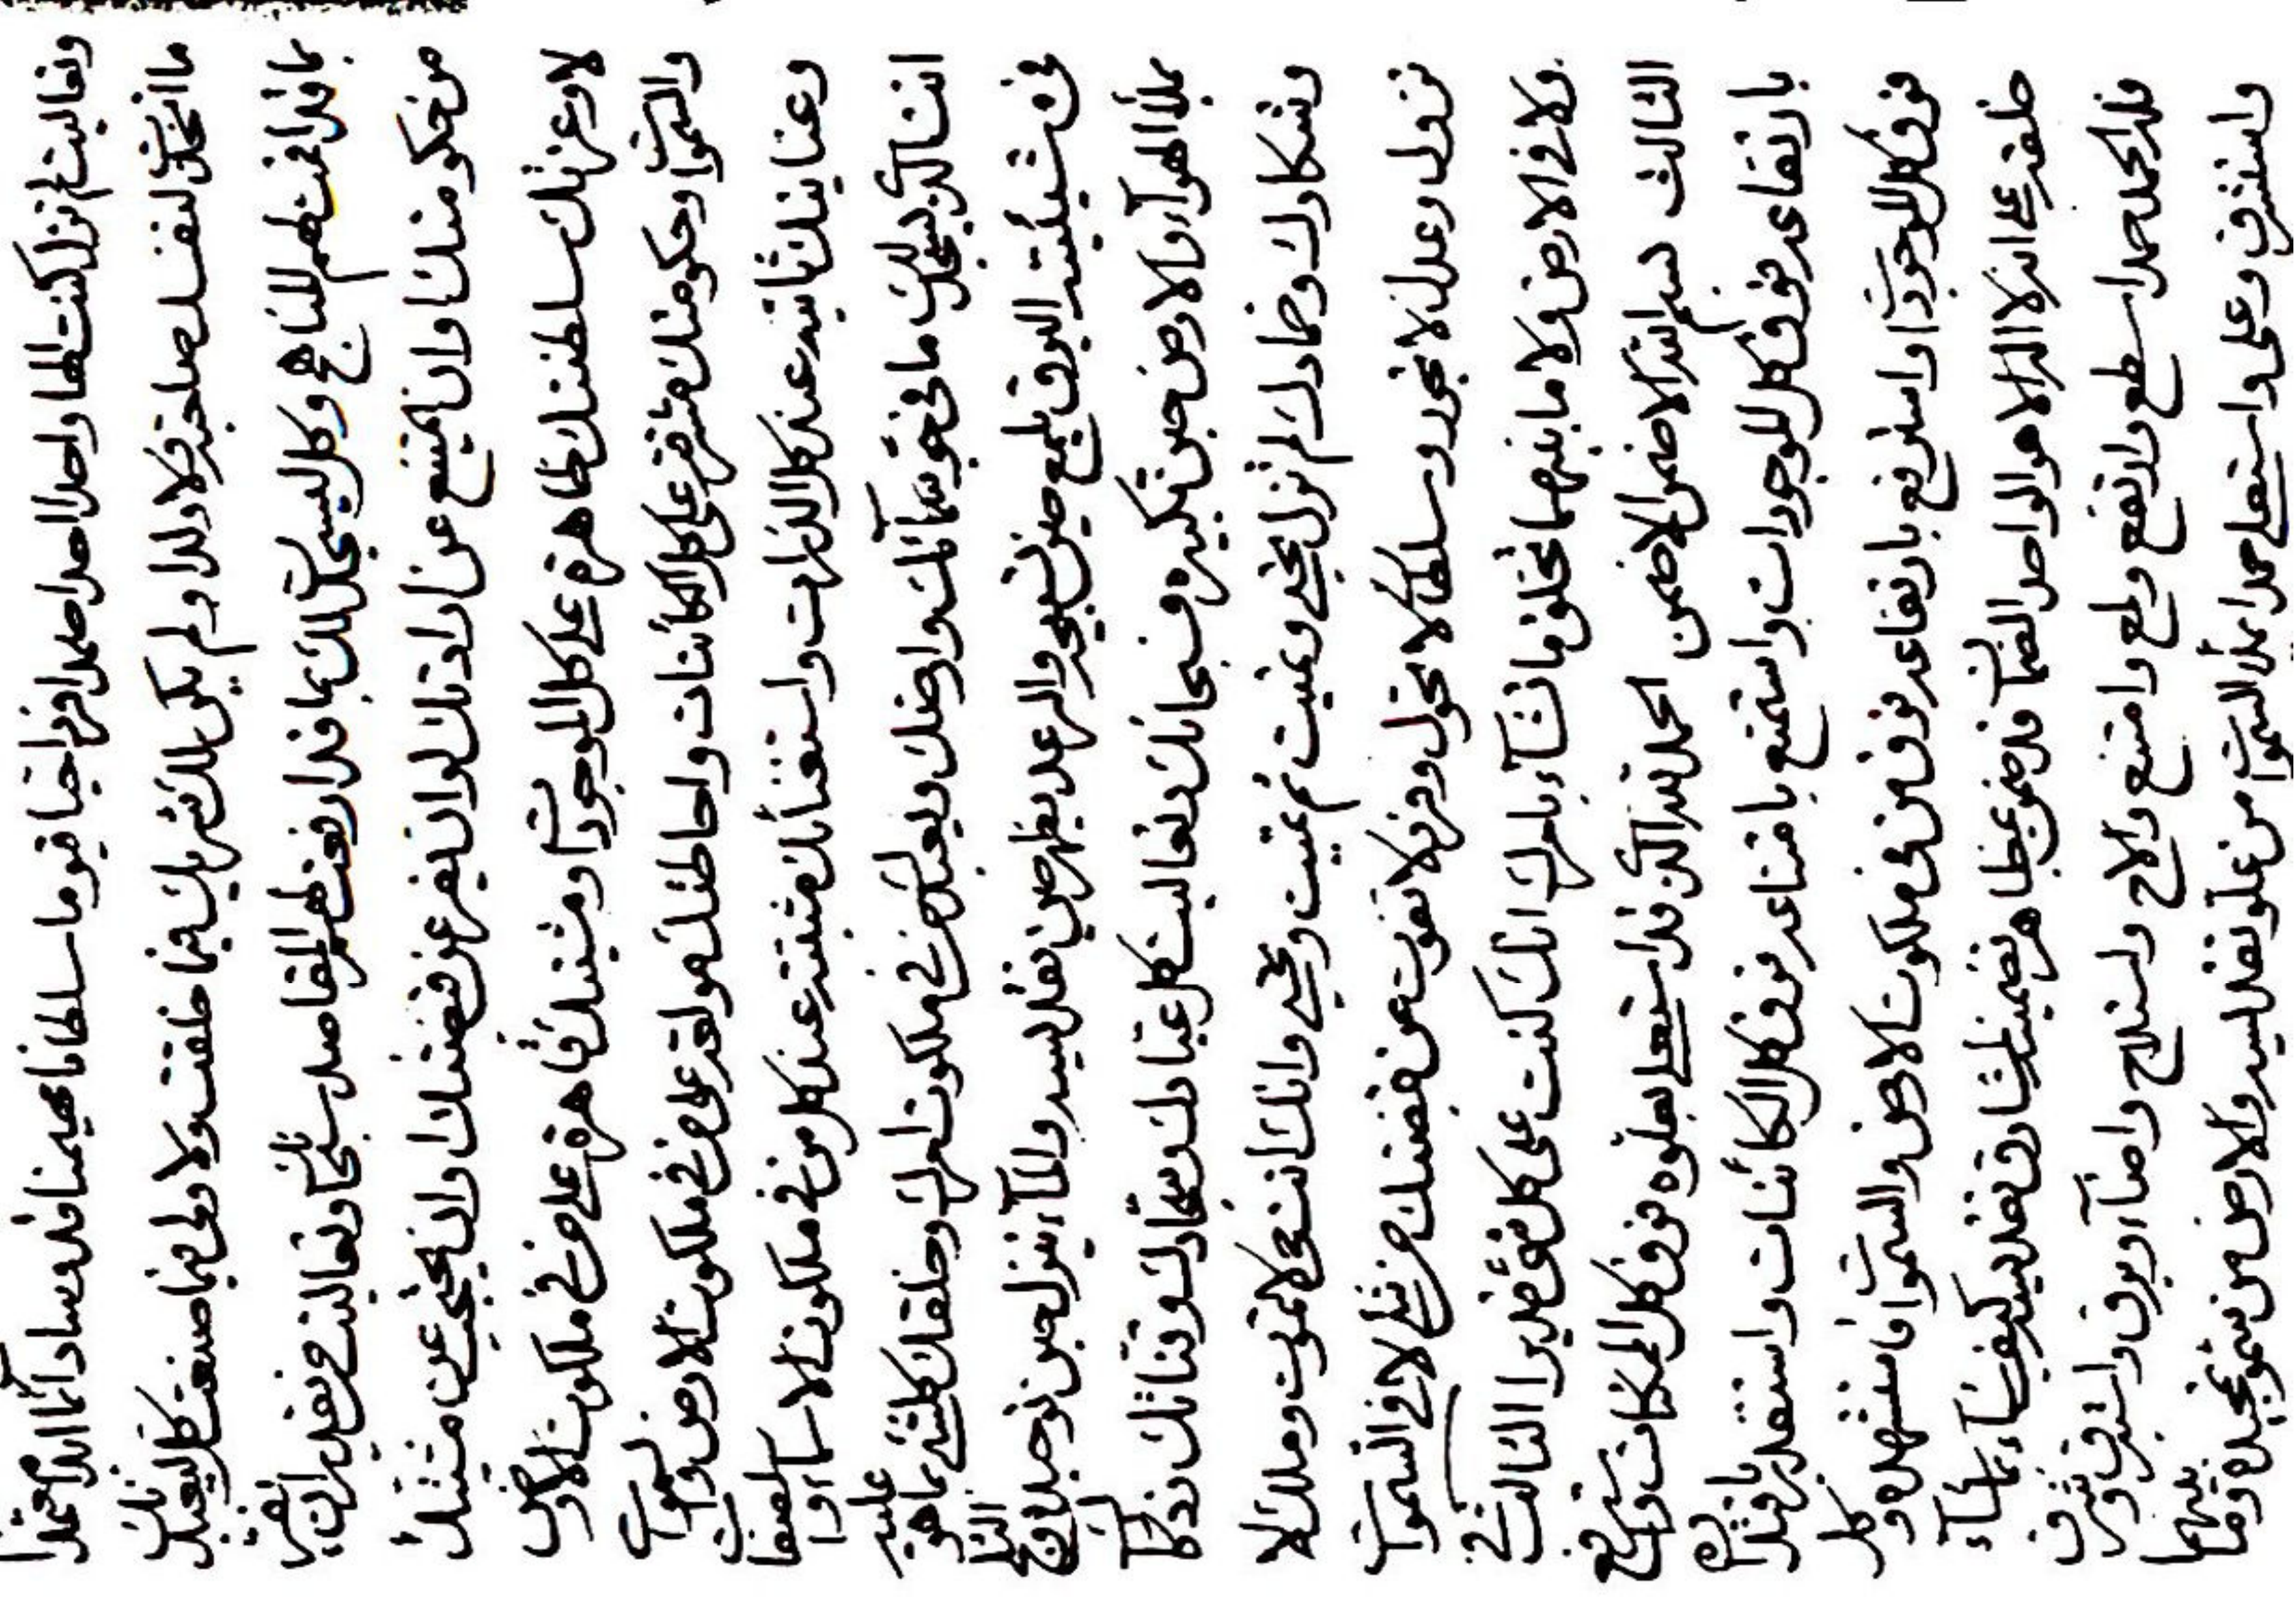 وتعاليت لم تزل كنت الها واحدا احدا صمدا فردا حيا قيوما سلطانا مهيمنا قدوسا دآئما ابدا معتمدا
ما اتخذت لنفسك صاحبة ولا ولدا ولم يكن لك شريك فيما خلقت ولا ولى فيما صنعت كل ليعبدنك
بما قد اقمتهم المناهج وكل ليسجدن لك بما قد اريتهم المقاصد سبحانك وتعاليت من يقدر ان يفر
من حكومتك او ان يمتنع عن ارادتك او ان يفر عن قبضتك او ان يحتجب عن مشيتك
لا وعزتك سلطنتك ظاهرة على كل الموجودات ومشيتك قاهرة على من فى ملكوت الارض
والسموات وحكومتك متقنة على كل الكائنات واحاطتك مرتفعة على من فى ملكوت الارض والسموات
وعنايتك ثابتة عند كل الذرات واستغنائك مثبتة عند كل من فى ملكوت الاسماء والصفات
انت الذى يسجد لك ما فى جو سمائك وارضك ويعبدك من فى ملكوت امرك وخلقك كلشئ بما هو عليه
فى شيئيته البرق يلمع حين تسبيحه والرعد يظهر حين تقديسه والماء ينزل حين توحيده والثلج
يملأ الهوآء والارض حين تكبيره فسبحانك وتعاليت كل عبادك وسجادك وقناتك وذكارك
وشكارك وحمادك لم تزل تحيى وتميت ثم تميت وتحيى وانك انت حى لا تموت وملك لا
تزول وعدل لا تجور وسلطان لا تحول وفرد لا يفوت عن قبضتك من شئ لا فى السموات
ولا فى الارض ولا ما بينهما تخلق ما تشآء بامرك انك كنت على كل شئ قديرا الثالث فى
الثالث بسم الله الاضمن الاضمن الحمد لله الذى قد استعلى بعلوه فوق كل الممكنات واسترفع
بارتفاعه فوق كل الموجودات واستمنع بامتناعه فوق كل الكائنات واستقدر باقتداره
فوق كل الموجودات واسترفع بارتفاعه فوق من فى ملكوت الارض والسموات فاستشهده وكل
خلقه على انه لا اله الا هو الواحد الضمان
فله الحمد حمدا سطع وارتفع ولمع وامتنع والاح واستلاح واضآء وبرق واشرق وشرق
واستشرق وعلى واستعلى حمدا يملأ السموات من علو تقديسه والارض من سمو تمجيده وما بينهما